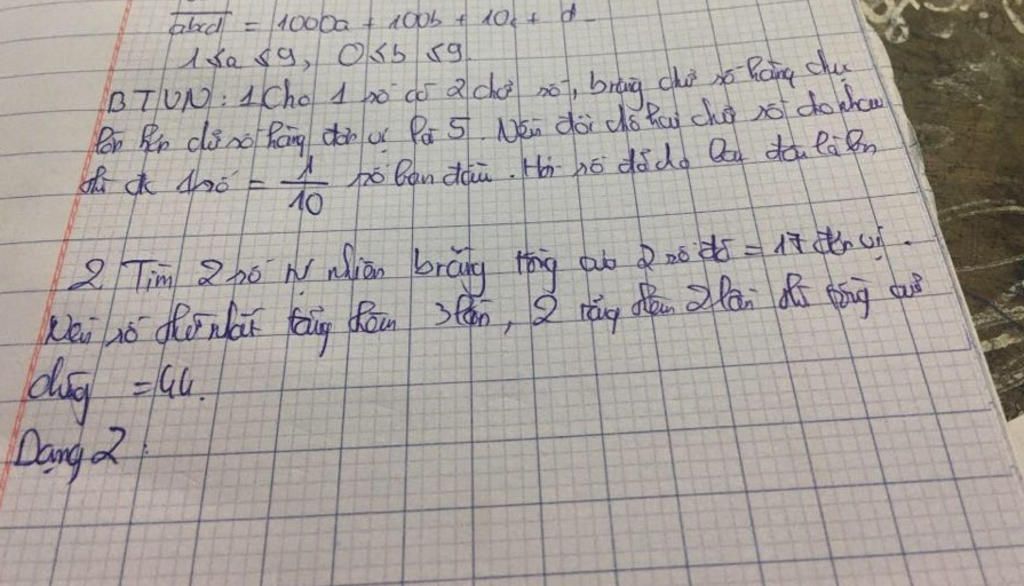 abcd = 1000a + 100b + 10c + d
1 ≤ a ≤ 9, 0 ≤ b ≤ 9
BTVN: 1 Cho 1 số có 2 chữ số, bt rằng chữ số hàng chục
lớn hơn chữ số hàng đơn vị là 5. Nếu đổi chỗ hai chữ số cho nhau
thì đc 1 số = 1/10 số ban đầu. Hỏi số đó ban đầu là
2 Tìm 2 số tự nhiên bt rằng tổng của 2 số đó = 17 đơn vị.
Nếu số thứ nhất tăng thêm 3 lần, 2 tăng thêm 2 lần thì tổng của
chúng = 44.
Dạng 2: